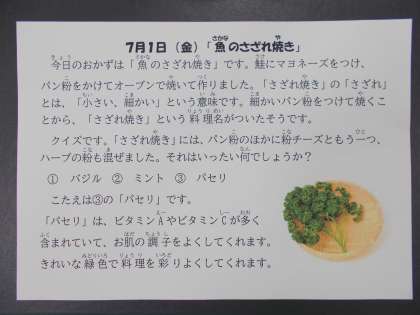 7月1日（金）「魚のさざれ焼き」
今日のおかずは「魚のさざれ焼き」です。鮭にマヨネーズをつけ、
パン粉をかけてオーブンで焼いて作りました。「さざれ焼き」の「さざれ」
とは、「小さい、細かい」という意味です。細かいパン粉をつけて焼くこ
とから、「さざれ焼き」という料理名がついたそうです。
クイズです。「さざれ焼き」には、パン粉のほかに粉チーズともう一つ、
ハーブの粉も混ぜました。それはいったい何でしょうか？
① バジル ② ミント ③ パセリ
こたえは③の「パセリ」です。
「パセリ」は、ビタミンAやビタミンCが多く
含まれていて、お肌の調子をよくしてくれます。
きれいな緑色で料理を彩りよくしてくれます。